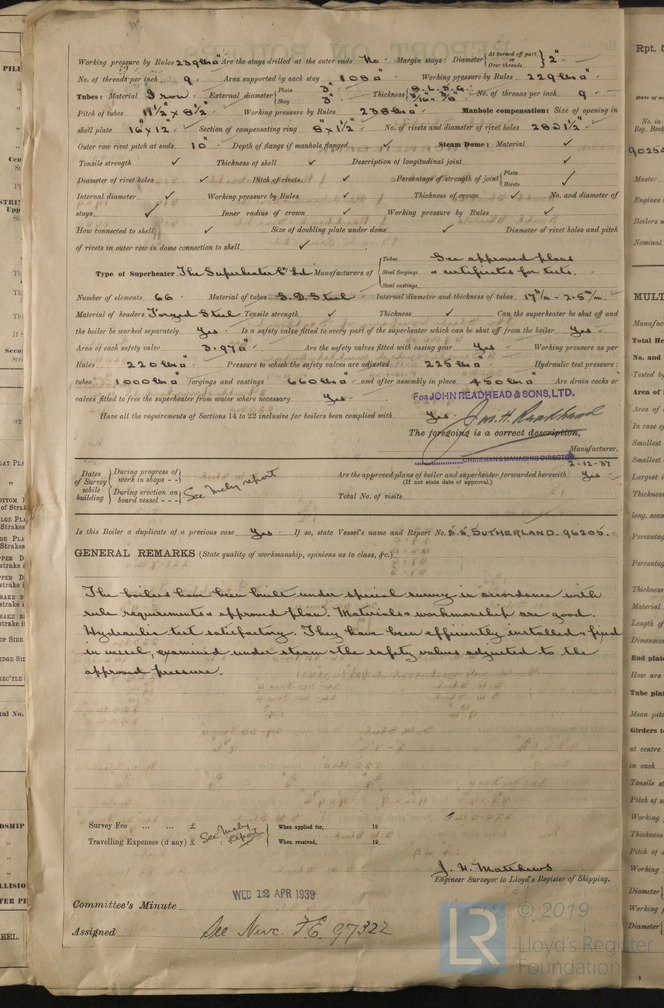 Working pressure by Rules 230 lbs □" Are the stays drilled at the outer ends No. Margin stays: Diameter { At turned off part, or Over threads } 2"
No. of threads per inch 9 Area supported by each stay 108 □" Working pressure by Rules 229 lbs □"
Tubes: Material Iron External diameter { Plain 3" Stay 3" Thickness { 8. L.S.G. 5/16" 3/8" No. of threads per inch 9
Pitch of tubes 11½" x 8½" Working pressure by Rules 238 lbs □" Manhole compensation: Size of opening in
shell plate 16 x 12 Section of compensating ring 8" x 1½" No. of rivets and diameter of rivet holes 28 @ 1½"
Outer row rivet pitch at ends 10" Depth of flange if manhole flanged ✓ Steam Dome: Material ✓
Tensile strength ✓ Thickness of shell ✓ Description of longitudinal joint ✓
Diameter of rivet holes ✓ Pitch of rivets ✓ Percentage of strength of joint { Plate Rivets ✓
Internal diameter ✓ Working pressure by Rules ✓ Thickness of crown ✓ No. and diameter of
stays ✓ Inner radius of crown ✓ Working pressure by Rules ✓
How connected to shell ✓ Size of doubling plate under dome ✓ Diameter of rivet holes and pitch
of rivets in outer row in dome connection to shell ✓
Type of Superheater The Superheater Co Ltd Manufacturers of { Tubes Steel forgings Steel castings See approved plans & certificates for tests.
Number of elements 66 Material of tubes S.D. Steel Internal diameter and thickness of tubes 17 m/m - 2.5 m/m.
Material of headers Forged Steel Tensile strength ✓ Thickness ✓ Can the superheater be shut off and
the boiler be worked separately Yes Is a safety valve fitted to every part of the superheater which can be shut off from the boiler Yes
Area of each safety valve 3.97 □" Are the safety valves fitted with easing gear Yes Working pressure as per
Rules 220 lbs □" Pressure to which the safety valves are adjusted 225 lbs □" Hydraulic test pressure:
tubes 1000 lbs □" forgings and castings 660 lbs □" and after assembly in place 450 lbs □" Are drain cocks or
valves fitted to free the superheater from water where necessary Yes
For JOHN READHEAD & SONS, LTD.
Have all the requirements of Sections 14 to 22 inclusive for boilers been complied with Yes
Jas. H. Readhead
The foregoing is a correct description,
Manufacturer.
CHAIRMAN & MANAGING DIRECTOR
2-12-37
Dates of Survey while building { During progress of work in shops - - During erection on board vessel - - - } See Mchy report
Are the approved plans of boiler and superheater forwarded herewith Yes
(If not state date of approval.)
Total No. of visits
Is this Boiler a duplicate of a previous case Yes If so, state Vessel's name and Report No. S.S. SUTHERLAND. 96205.
GENERAL REMARKS (State quality of workmanship, opinions as to class, &c.)
The boilers have been built under special survey in accordance with
rule requirements & approved plan. Materials & workmanship are good.
Hydraulic test satisfactory. They have been efficiently installed & fixed
in vessel, examined under steam & the safety valves adjusted to the
approved pressure.
Survey Fee ... ... £ See Mchy report When applied for, 19
Travelling Expenses (if any) £ When received, 19
J. N. Matthews
Engineer Surveyor to Lloyd's Register of Shipping.
WED 12 APR 1939
Committee's Minute
Assigned See Nwc. F.E. 97322
LR © 2019
Lloyd's Register
Foundation